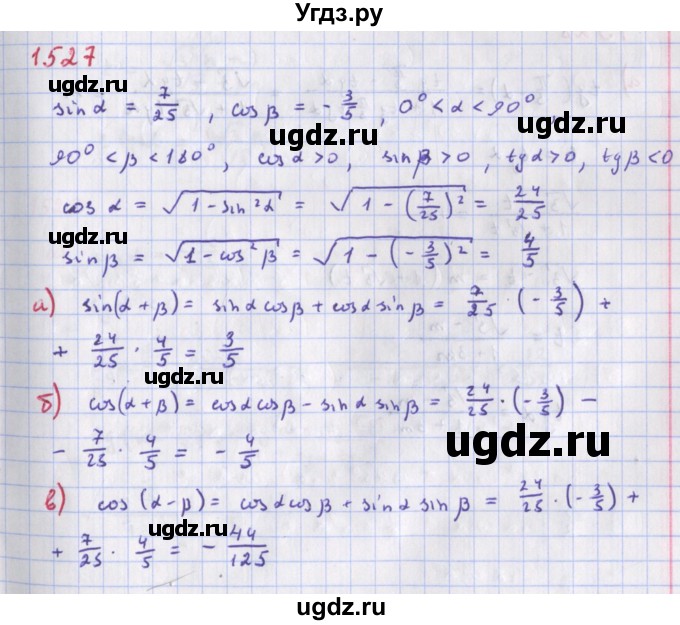 Угдз.ру
1527
gdz.ru
sin α = 7/25 , cos β = - 3/5 , 0° < α < 90° ,
ugdz.ru
ugdz.ru
90° < β < 180° , cos α > 0 , sin β > 0 , tg α > 0 , tg β < 0
cos α = √(1 - sin²α) = √(1 - (7/25)²) = 24/25
ugdz.ru
sin β = √(1 - cos²β) = √(1 - (-3/5)²) = 4/5
ugdz.ru
а) sin(α + β) = sin α cos β + cos α sin β = 7/25 · (- 3/5) +
+ 24/25 · 4/5 = 3/5
ugdz.ru
б) cos(α + β) = cos α cos β - sin α sin β = 24/25 · (- 3/5) -
ugdz.ru
- 7/25 · 4/5 = - 4/5
в) cos (α - β) = cos α cos β + sin α sin β = 24/25 · (- 3/5) +
ugdz.ru
+ 7/25 · 4/5 = - 44/125
ugdz.ru
ugdz.ru